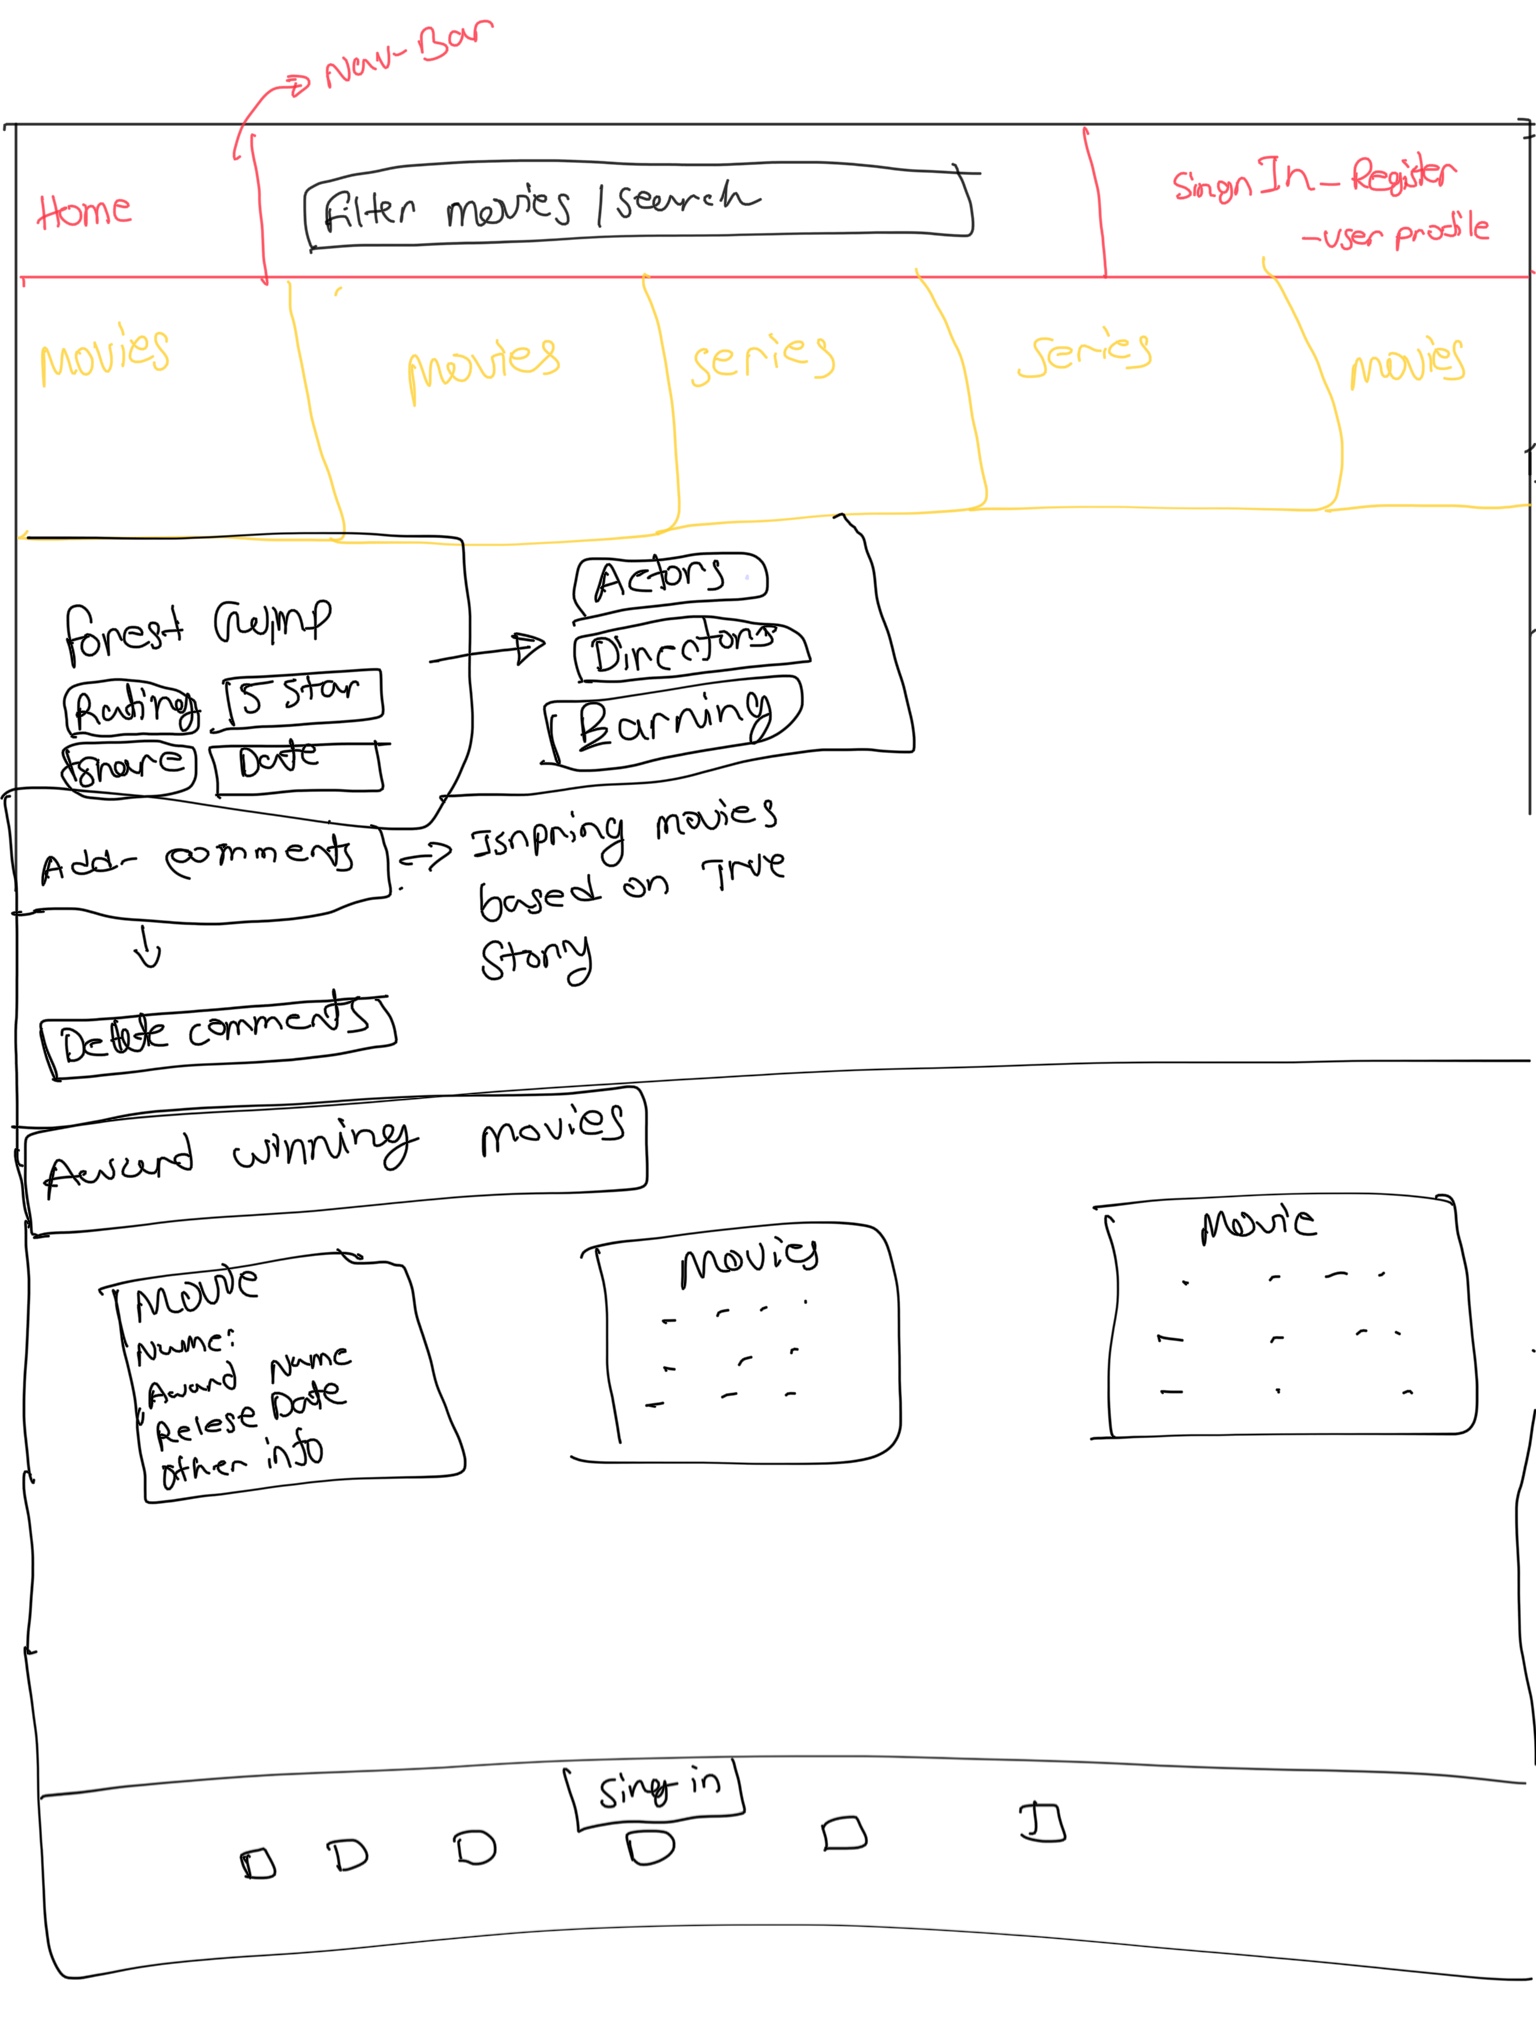 Nav-Bar
Home
filter movies / search
Singn In - Register
- user prodile
Movies
Movies
series
series
movies
forest Gump
Rating
5 star
share
Date
Actors
Directors
Barning
Add- comments
Isnpring movies
based on True
Story
Delete comments
Award winning movies
Movie
Name:
Award Name
Relese Date
other info
Movies
Movie
Sing in